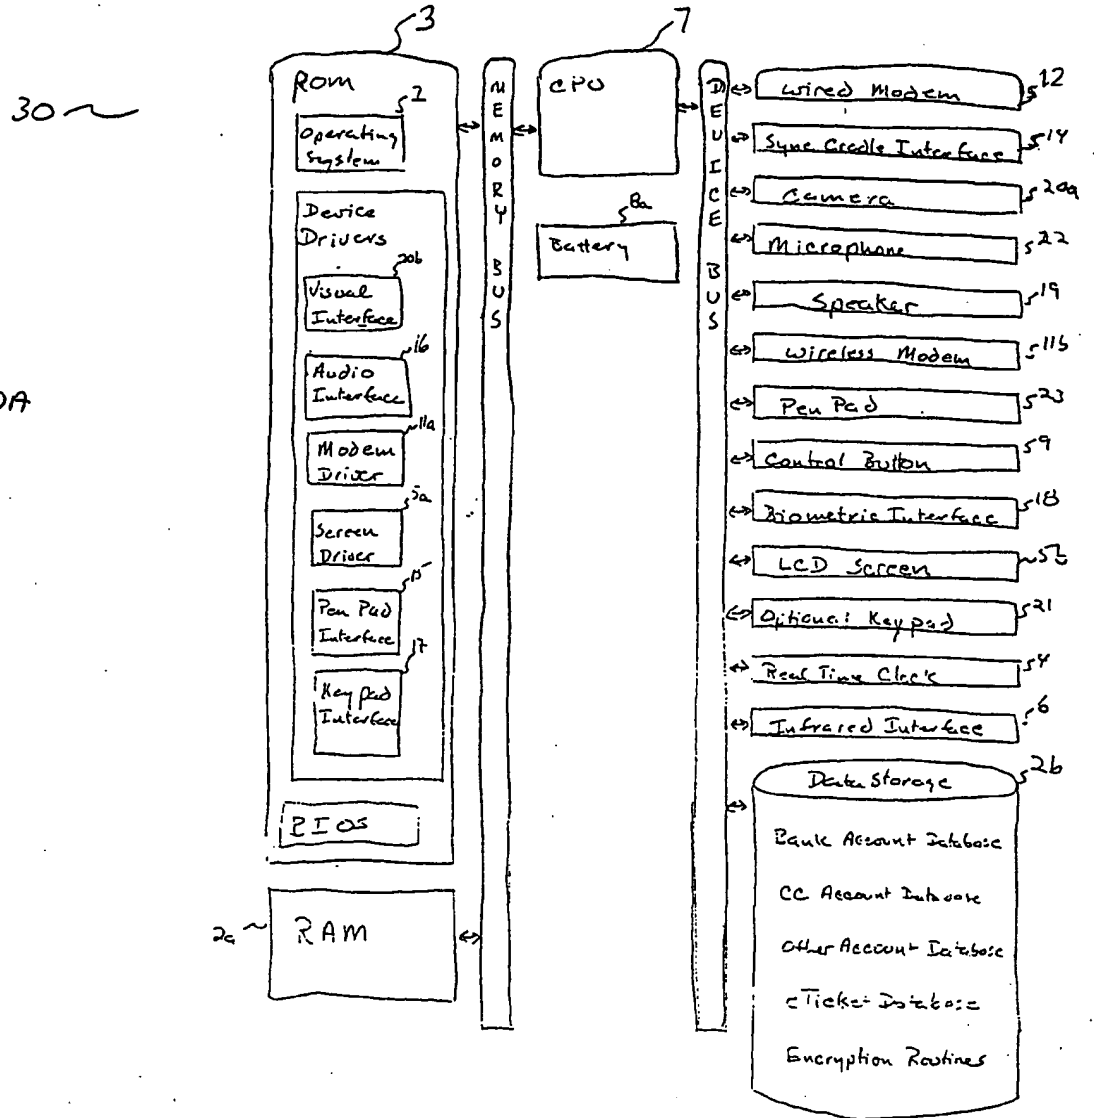 3
7
30
ROM
2
Operating
System
Device
Drivers
20b
Visual
Interface
16
Audio
Interface
11a
Modem
Driver
5a
Screen
Driver
15
Pen Pad
Interface
17
Keypad
Interface
BIOS
2a
RAM
MEMORY BUS
CPU
8a
Battery
DEVICE BUS
Wired Modem
12
Sync Cradle Interface
14
Camera
20a
Microphone
22
Speaker
19
Wireless Modem
11b
Pen Pad
23
Control Button
9
Biometric Interface
18
LCD Screen
5b
Optional Keypad
21
Real Time Clock
4
Infrared Interface
6
Data Storage
2b
Bank Account Database
CC Account Database
Other Account Database
eTicket Database
Encryption Routines